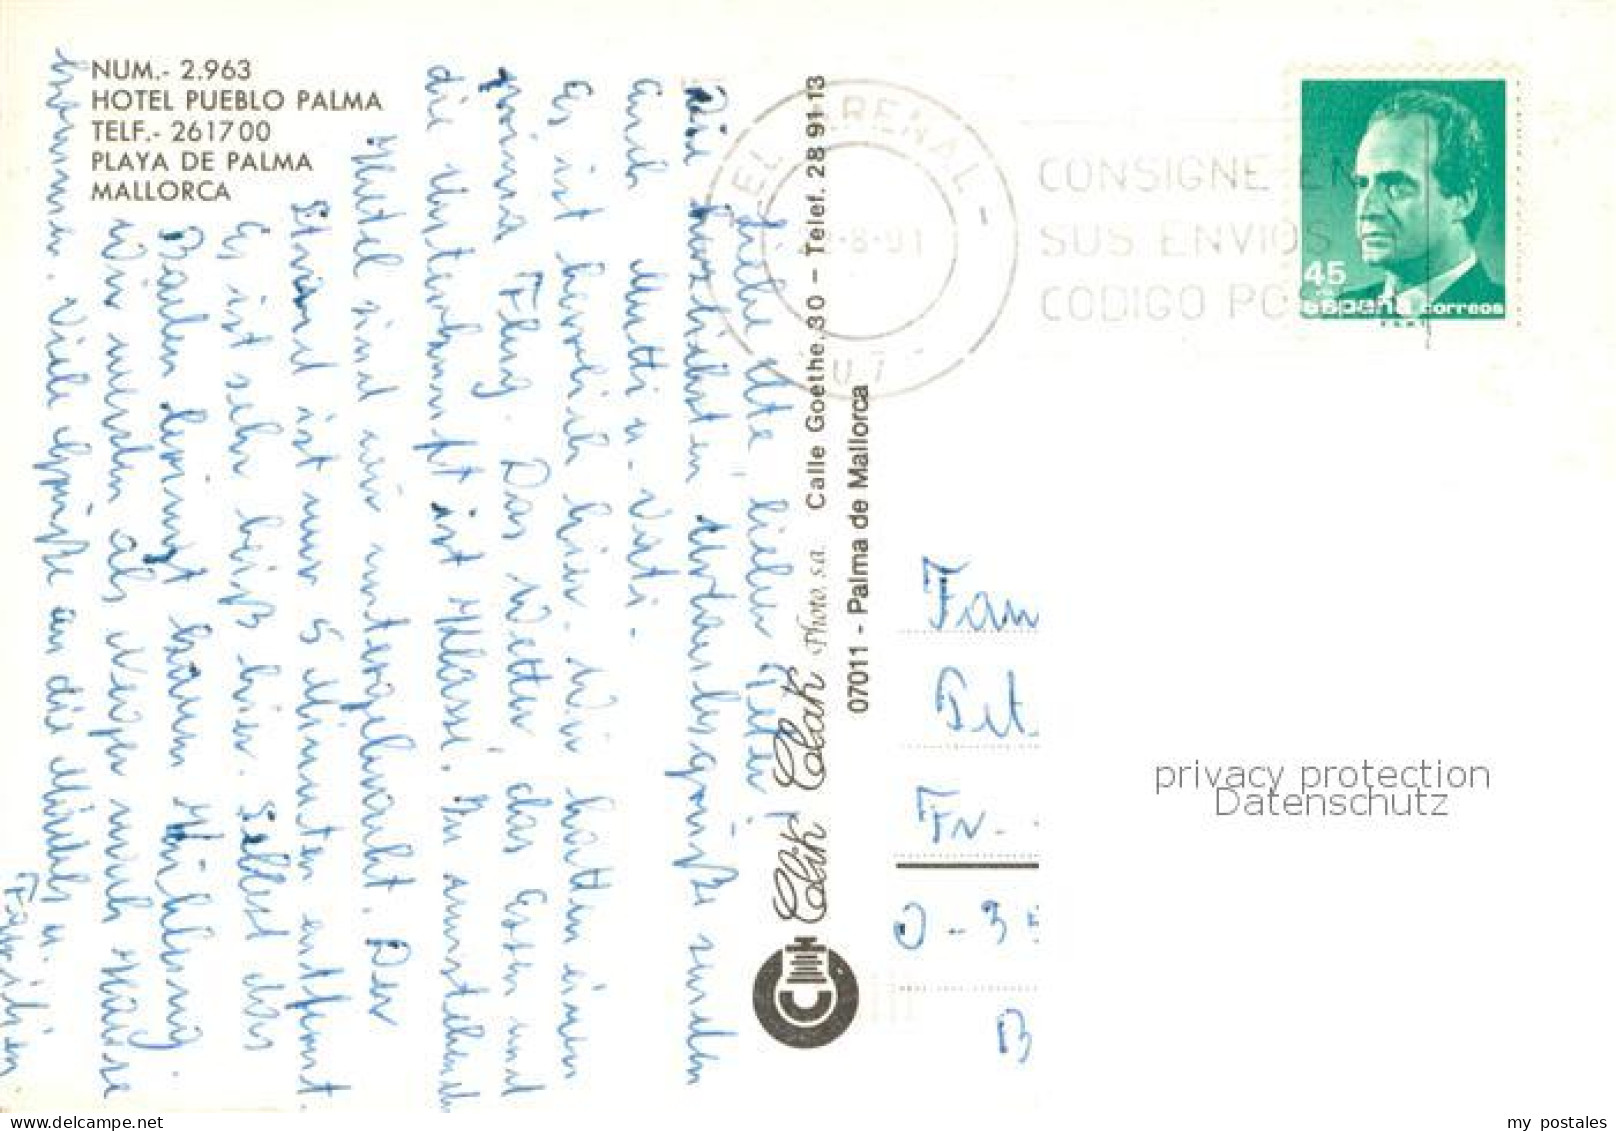 NUM.- 2.963
HOTEL PUEBLO PALMA
TELF.- 261700
PLAYA DE PALMA
MALLORCA
Liebe Ute, lieber Peter!
Die herzlichsten Urlaubsgrüße senden
Euch Mutti u. Vati.
Es ist herrlich hier. Wir hatten einen
prima Flug. Das Wetter, das Essen und
die Unterkunft ist Klasse. Im
Hotel sind wir untergebracht. Der
Strand ist nur 5 Minuten entfernt.
Es ist sehr heiß hier. Selbst das
Baden bringt kaum Kühlung.
Wir werden als Neger nach Hause
kommen. Viele Grüße an die Mädels u.
Familien
Clik Clak Photo, s.a. Calle Goethe, 30 – Telef. 28 91 13
07011 - Palma de Mallorca
EL ARENAL -
-8-91
07
CONSIGNE EN
SUS ENVIOS
CODIGO PO
45
españa correos
F.N.M.T.
Fam
Pet
Fr
O-35
B
privacy protection
Datenschutz
my postales